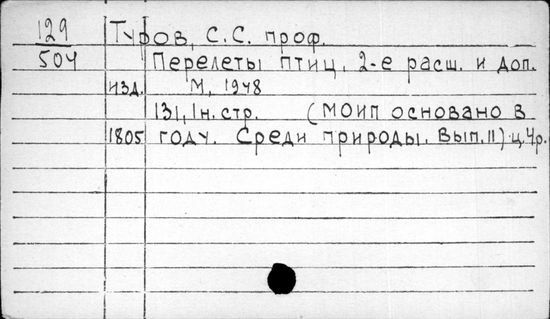 129 Туров, С.С. проф.
504 Перелеты птиц. 2-е расш. и доп.
изд. М, 1948
131, 1н. стр. (МОИП основано в
1805 году. Среди природы. Вып. II) ц. 4р.